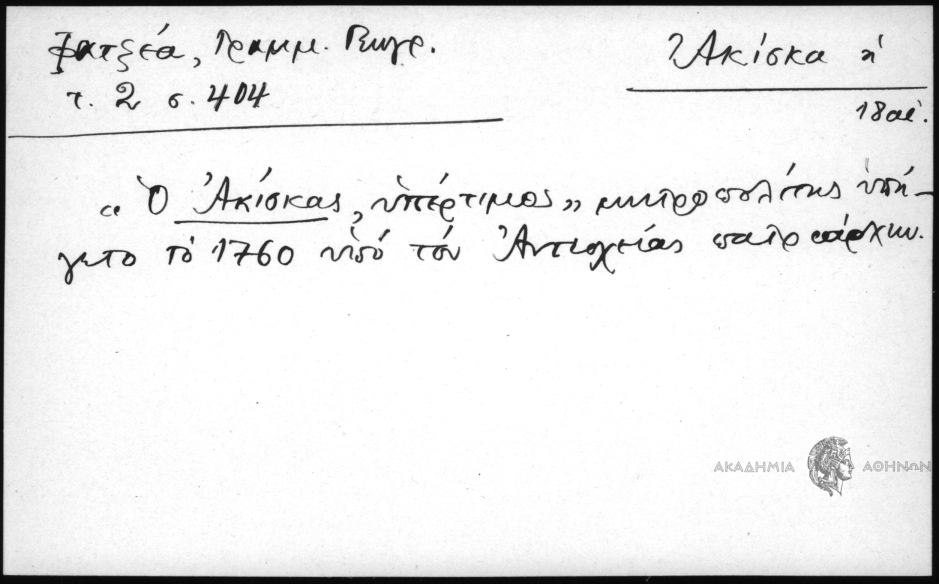 Φατζέα, Γραμμ. Γεωγρ.
τ. 2 σ. 404
Ἀκίσκα ἡ
18 αἰ.
« Ὁ Ἀκίσκας, ὑπέρτιμος » μητροπολίτης ὑπή-
γετο τὸ 1760 ὑπό τόν Ἀντιοχείας πατριάρχην.
ΑΚΑΔΗΜΙΑ ΑΘΗΝΩΝ